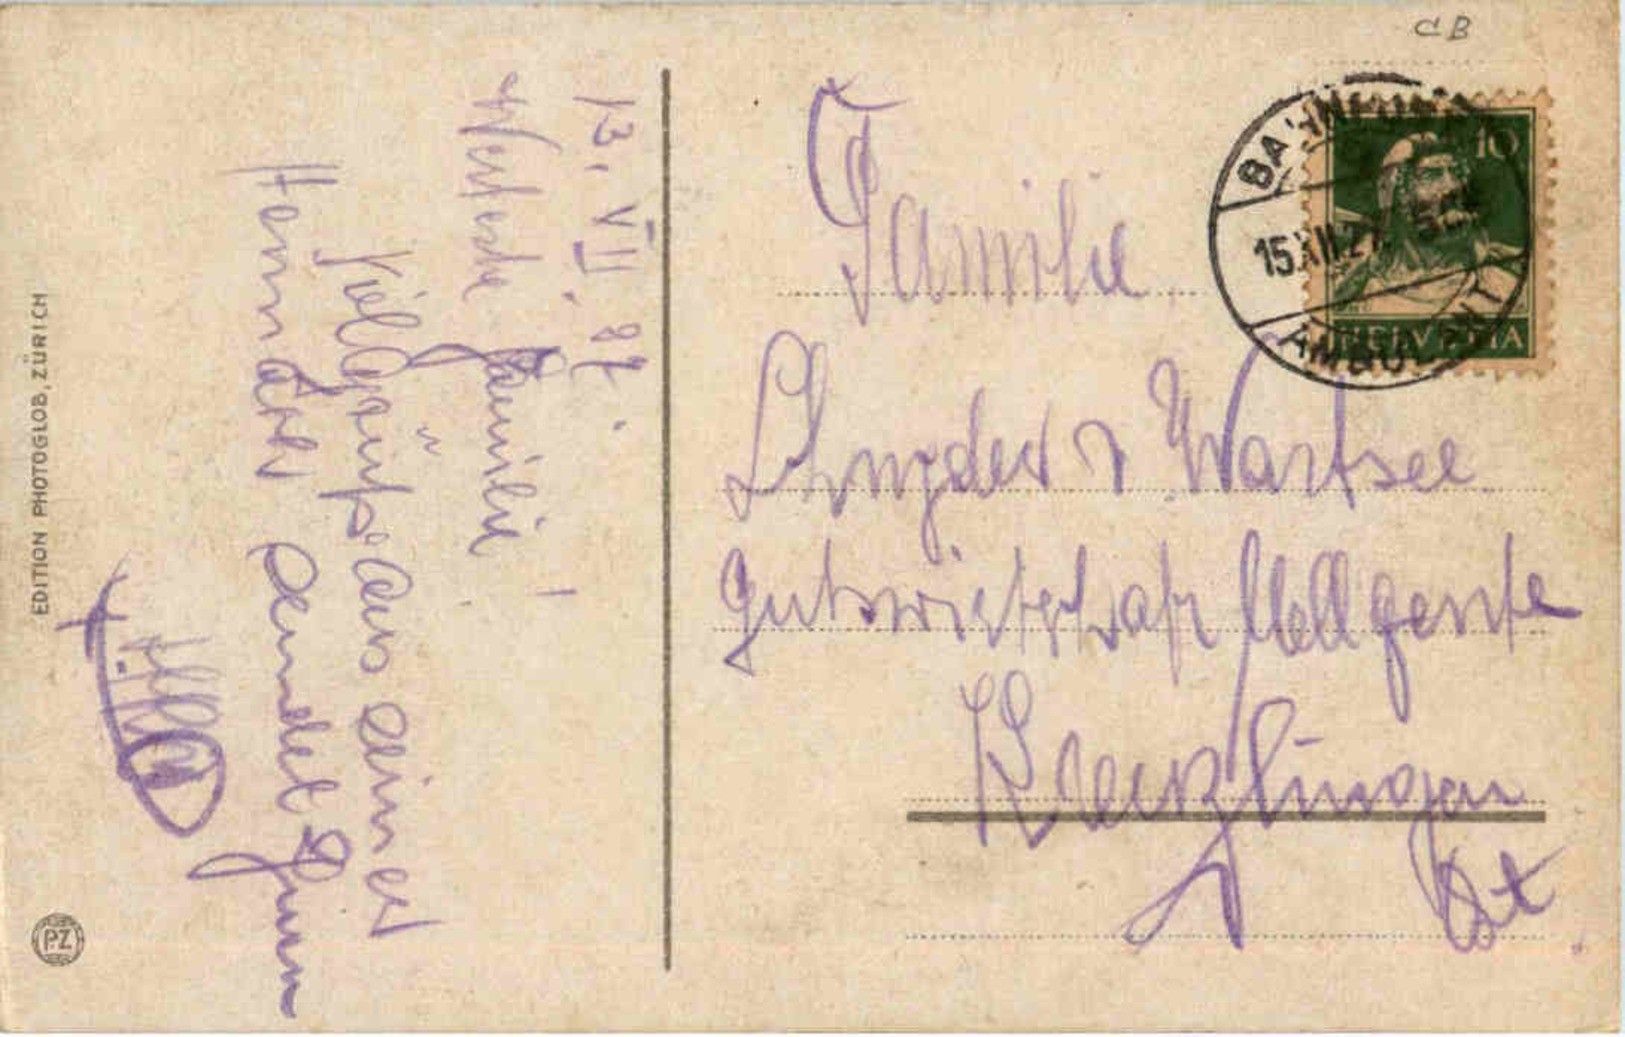 13. VII. 27.
Werteste Familie!
Viel Grüsse aus einer
Heimat sendet Ihnen
EDITION PHOTOGLOB, ZÜRICH
PZ
CB
BAHNPOST
15.XII.27
AMBULANT
10
HELVETIA
Familie
Schnyder v Wartsee
Gutswirtschaft
Kreuzlingen
Ost